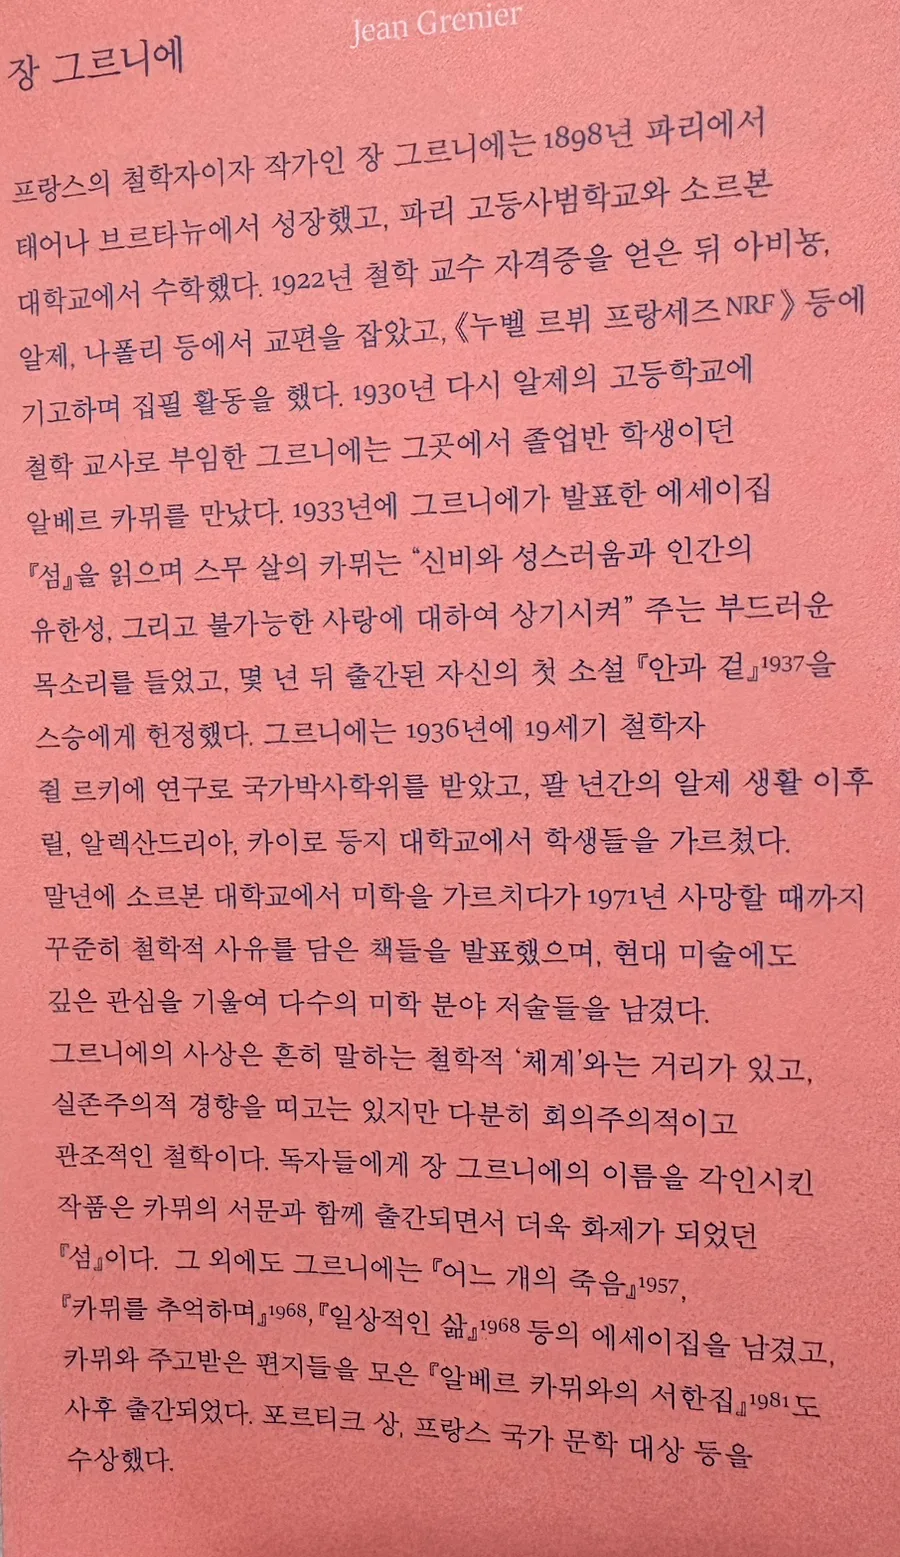 Jean Grenier
장 그르니에
프랑스의 철학자이자 작가인 장 그르니에는 1898년 파리에서
태어나 브르타뉴에서 성장했고, 파리 고등사범학교와 소르본
대학교에서 수학했다. 1922년 철학 교수 자격증을 얻은 뒤 아비뇽,
알제, 나폴리 등에서 교편을 잡았고, 《누벨 르뷔 프랑세즈NRF》 등에
기고하며 집필 활동을 했다. 1930년 다시 알제의 고등학교에
철학 교사로 부임한 그르니에는 그곳에서 졸업반 학생이던
알베르 카뮈를 만났다. 1933년에 그르니에가 발표한 에세이집
『섬』을 읽으며 스무 살의 카뮈는 “신비와 성스러움과 인간의
유한성, 그리고 불가능한 사랑에 대하여 상기시켜” 주는 부드러운
목소리를 들었고, 몇 년 뒤 출간된 자신의 첫 소설 『안과 겉』1937을
스승에게 헌정했다. 그르니에는 1936년에 19세기 철학자
쥘 르키에 연구로 국가박사학위를 받았고, 팔 년간의 알제 생활 이후
릴, 알렉산드리아, 카이로 등지 대학교에서 학생들을 가르쳤다.
말년에 소르본 대학교에서 미학을 가르치다가 1971년 사망할 때까지
꾸준히 철학적 사유를 담은 책들을 발표했으며, 현대 미술에도
깊은 관심을 기울여 다수의 미학 분야 저술들을 남겼다.
그르니에의 사상은 흔히 말하는 철학적 ‘체계’와는 거리가 있고,
실존주의적 경향을 띠고는 있지만 다분히 회의주의적이고
관조적인 철학이다. 독자들에게 장 그르니에의 이름을 각인시킨
작품은 카뮈의 서문과 함께 출간되면서 더욱 화제가 되었던
『섬』이다. 그 외에도 그르니에는 『어느 개의 죽음』1957,
『카뮈를 추억하며』1968, 『일상적인 삶』1968 등의 에세이집을 남겼고,
카뮈와 주고받은 편지들을 모은 『알베르 카뮈와의 서한집』1981도
사후 출간되었다. 포르티크 상, 프랑스 국가 문학 대상 등을
수상했다.